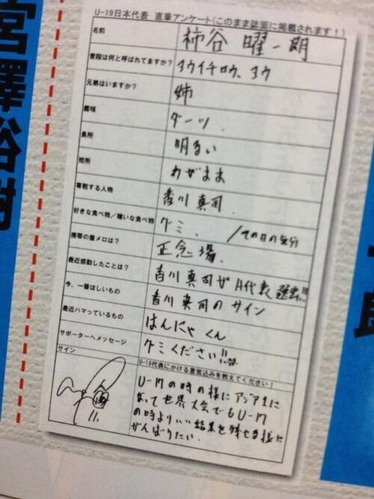 U-19日本代表 直筆アンケート(このまま誌面に掲載されます!)
名前 柿谷 曜一朗
普段は何と呼ばれてますか? ヨウイチロウ、ヨウ
兄弟はいますか? 姉
趣味 ダーツ
長所 明るい
短所 わがまま
尊敬する人物 香川真司
好きな食べ物/嫌いな食べ物 グミ /その日の気分
携帯の着メロは? 正念場
最近感動したことは? 香川真司がA代表選出
今、一番ほしいもの 香川真司のサイン
最近ハマっているもの はんにゃくん
サポーターへメッセージ グミください!!
サイン
U-19代表にかける意気込みを教えてください!
U-17の時の様にアジア1に
なって世界大会でもU-17
の時よりいい結果を残せる様に
がんばりたい。
宮澤裕樹